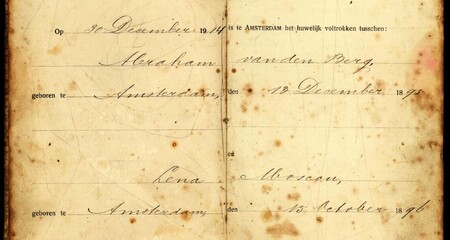 Op 30 December 1914 is te AMSTERDAM het huwelijk voltrokken tusschen:
Abraham van den Berg,
geboren te Amsterdam, den 12 December 1895
en
Lena Moscou,
geboren te Amsterdam, den 15 October 1896